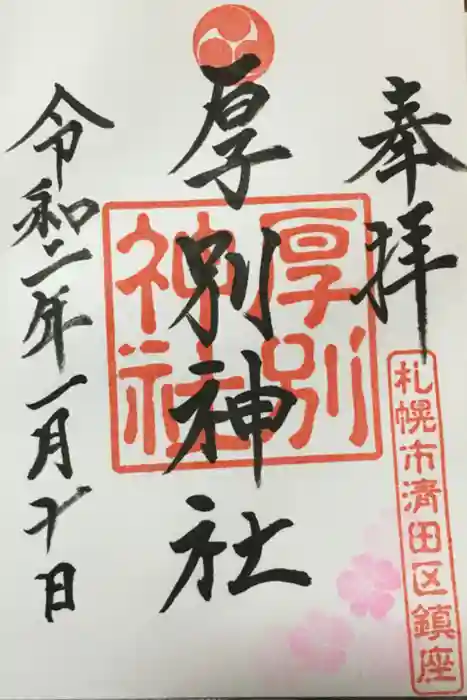 奉拝
札幌市清田区鎮座
厚別神社
厚別
神社
令和二年一月 日